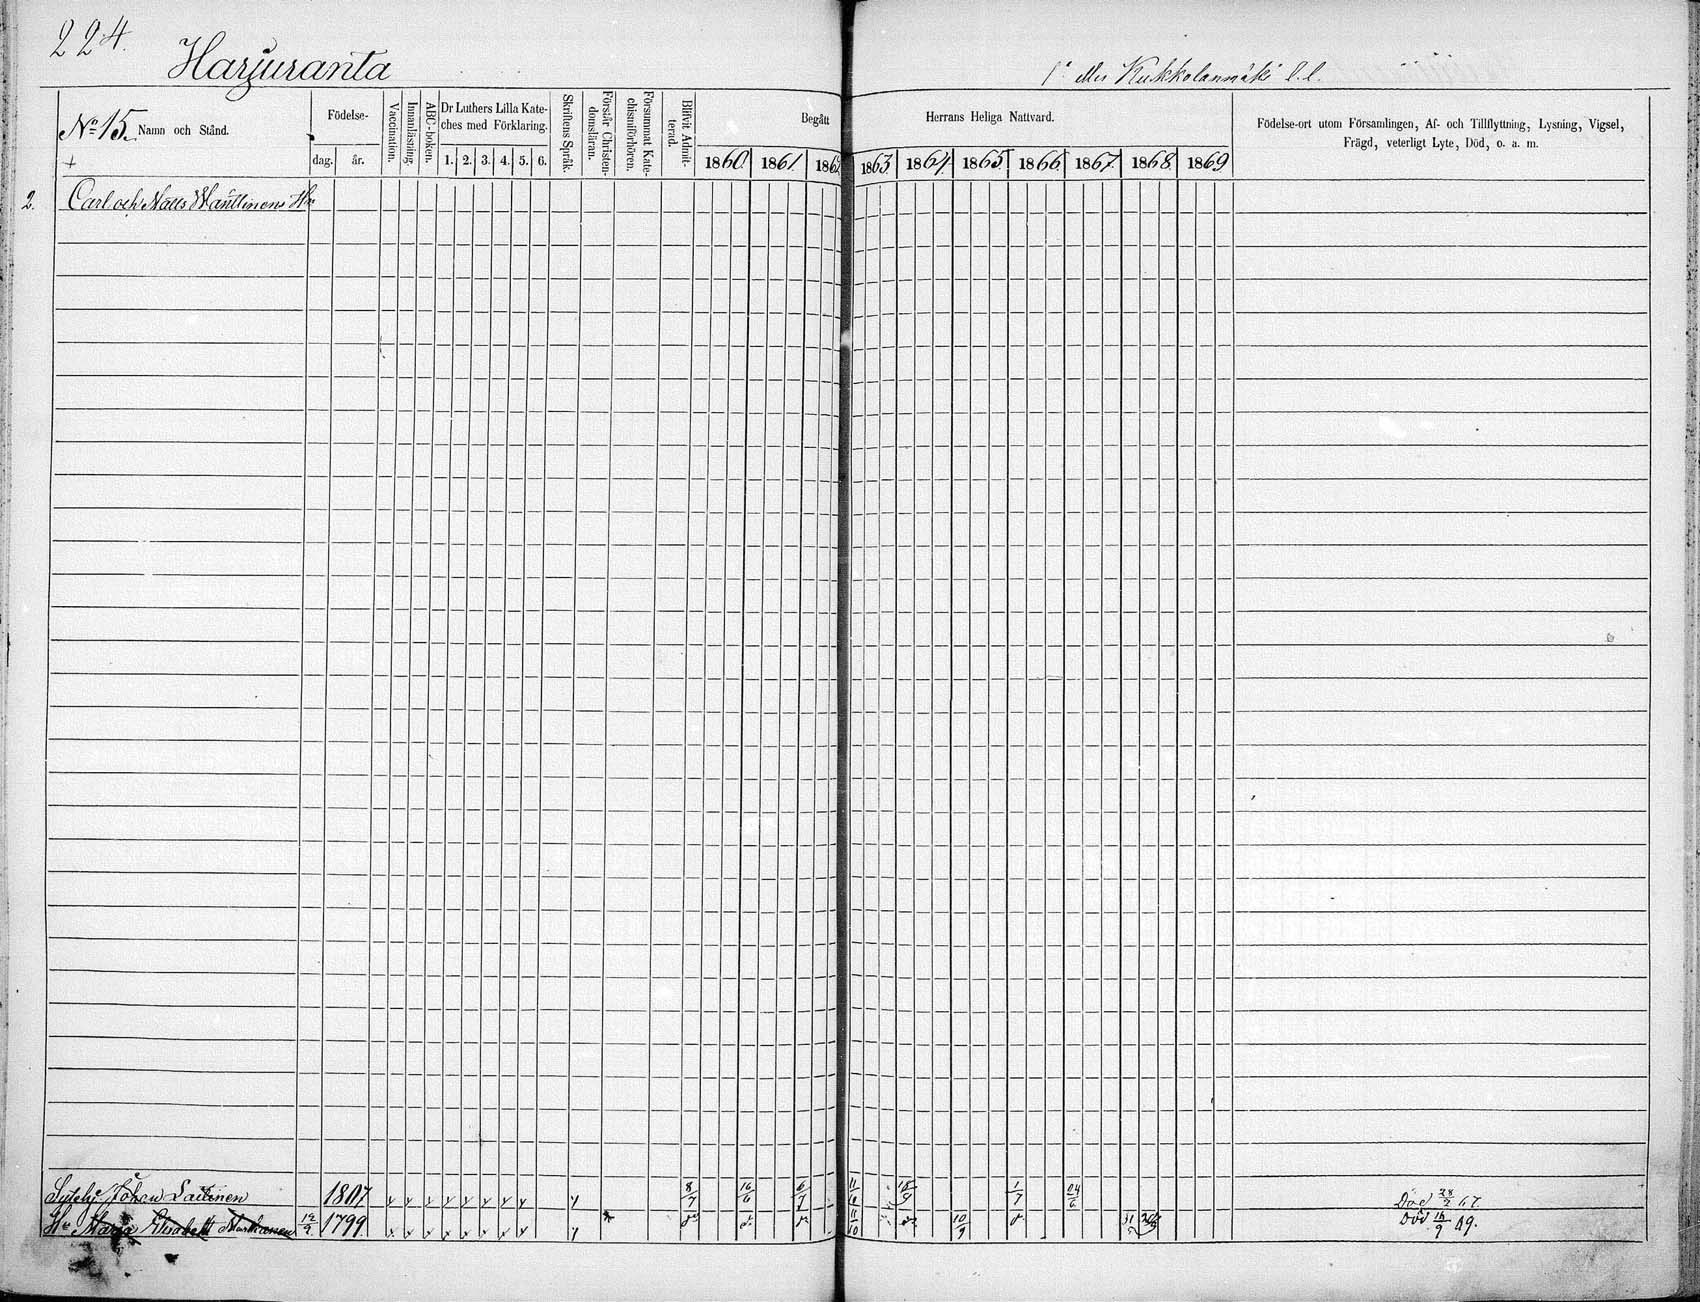 224.
Harjuranta
1° eller Kukkolanmäki l.l.
No 15. Namn och Stånd.
Födelse-
dag. år.
Vaccination.
Innanläsning.
ABC-boken.
Dr Luthers Lilla Kate-
ches med Förklaring.
1. 2. 3. 4. 5. 6.
Skriftens Språk.
Förstår Christen-
domsläran.
Försummat Kate-
chismiförhören.
Blifvit Admit-
terad.
Begått Herrans Heliga Nattvard.
1860 1861 1862 1863 1864 1865 1866 1867 1868 1869
Födelse-ort utom Församlingen, Af- och Tillflyttning, Lysning, Vigsel,
Frägd, veterligt Lyte, Död, o. a. m.
2. Carl och Matts
Johan Laitinen 1807 8/7 16/6 6/7 11/10 18/9 1/7 24/6 Död 28/2 67.
Hu Maria Elisabeth 1799 11/10 10/9 Död 16/9 69.